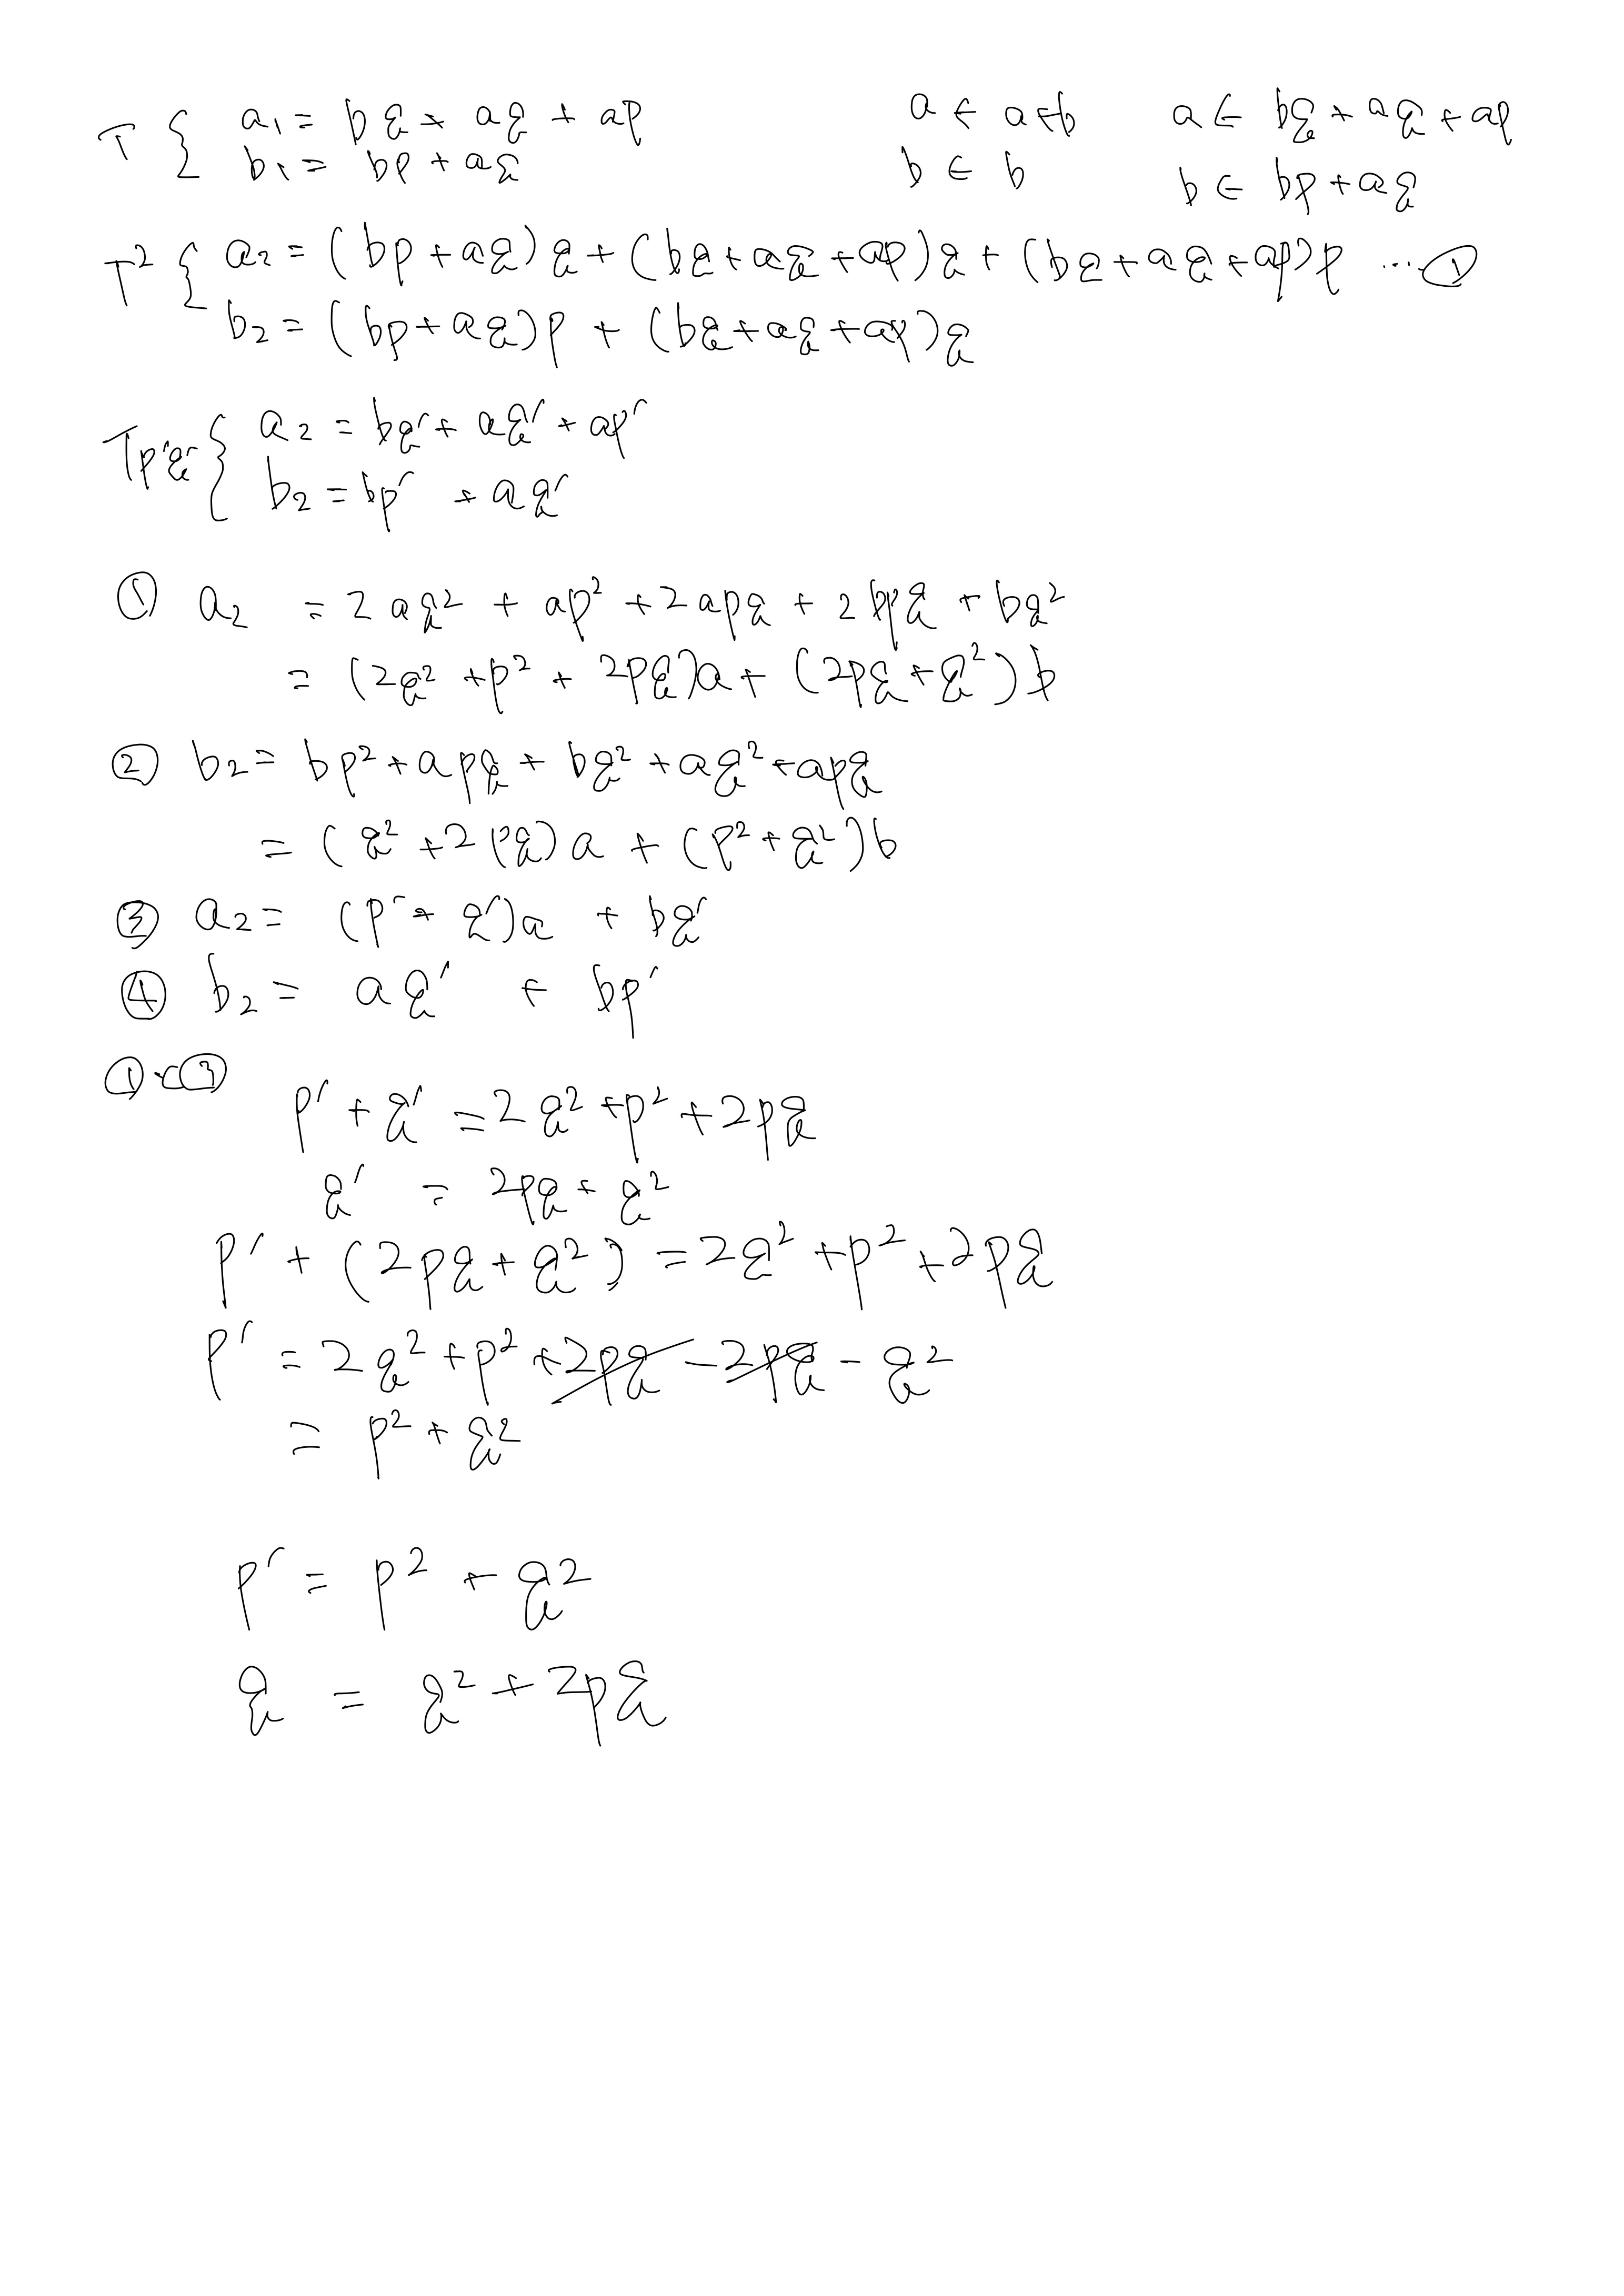 T { a₁ = bq + aq + ap    a ← a+b    a ← bq + aq + ap
b₁ = bp + aq    b ← b    b ← bp + aq
T² { a₂ = (bp + aq)q + (bq + aq + ap)q + (bq + aq + ap)p ... ①
b₂ = (bp + aq)p + (bq + aq + ap)q
Tp'q' { a₂ = bq' + aq' + ap'
b₂ = bp' + aq'
① a₂ = 2aq² + ap² + 2apq + 2bpq + bq²
= (2q² + p² + 2pq)a + (2pq + q²)b
② b₂ = bp² + apq + bq² + aq² + apq
= (q² + 2pq)a + (p² + q²)b
③ a₂ = (p' + q')a + bq'
④ b₂ = aq' + bp'
① ③
p' + q' = 2q² + p² + 2pq
q' = 2pq + q²
p' + (2pq + q²) = 2q² + p² + 2pq
p' = 2q² + p² + 2pq - 2pq - q²
= p² + q²
p' = p² + q²
q = q² + 2pq